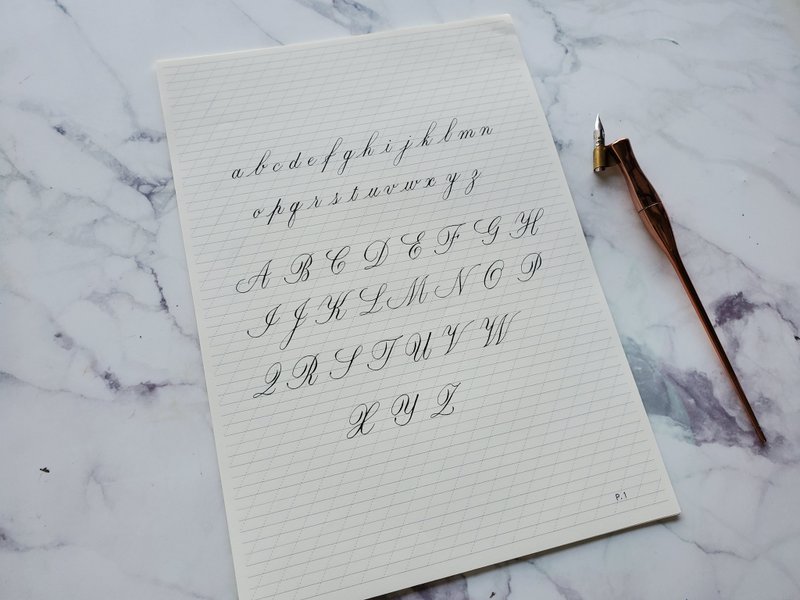 a b c d e f g h i j k l m n
o p q r s t u v w x y z
A B C D E F G H
I J K L M N O P
Q R S T U V W
X Y Z
P.1